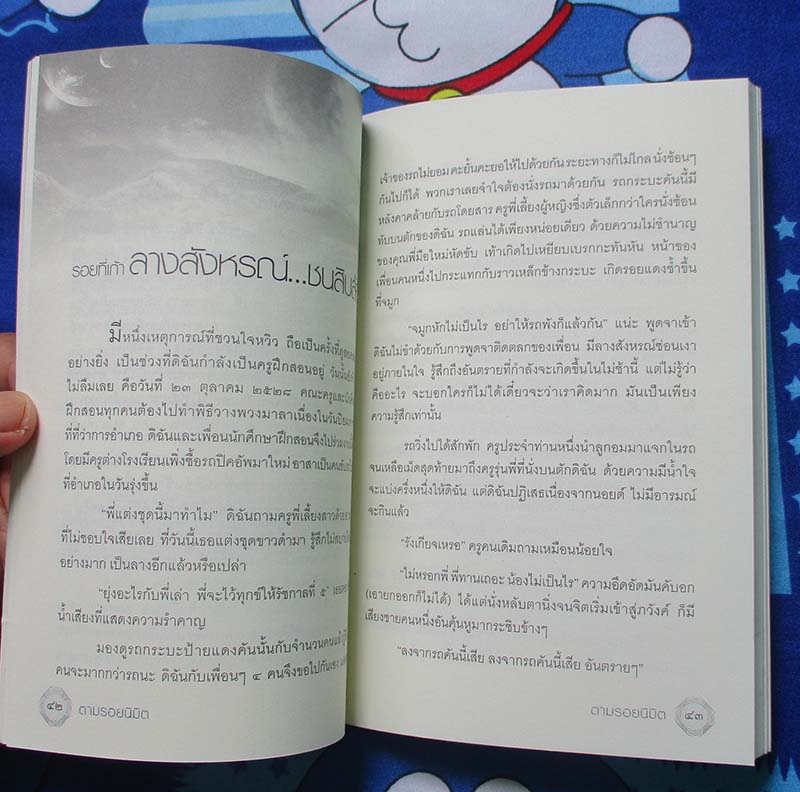 รอยที่เก้า ลางสังหรณ์...ชนสิบล้
มีหนึ่งเหตุการณ์ที่ชวนใจหวิว ถือเป็นครั้งที่
อย่างยิ่ง เป็นช่วงที่ดิฉันกำลังเป็นครูฝึกสอนอยู่ วันนั้น
ไม่ลืมเลย คือวันที่ ๒๓ ตุลาคม ๒๕๒๘ คณะครูและ
ฝึกสอนทุกคนต้องไปทำพิธีวางพวงมาลาเนื่องในวันปิย
ที่ที่ว่าการอำเภอ ดิฉันและเพื่อนนักศึกษาฝึกสอนจึงไปร่วม
โดยมีครูต่างโรงเรียนเพิ่งซื้อรถปิคอัพมาใหม่ อาสาเป็นคนขับ
ที่อำเภอในวันรุ่งขึ้น
"พี่แต่งชุดนี้มาทำไม" ดิฉันถามครูพี่เลี้ยงสาวด้วย
ที่ไม่ชอบใจเสียเลย ที่วันนี้เธอแต่งชุดขาวดำมา รู้สึกไม่สบาย
อย่างมาก เป็นลางอีกแล้วหรือเปล่า
"ยุ่งอะไรกับพี่เล่า พี่จะไว้ทุกข์ให้รัชกาลที่ ๕"
น้ำเสียงที่แสดงความรำคาญ
มองดูรถกระบะป้ายแดงคันนั้นกับจำนวนคนแล้ว
คนจะมากกว่ารถนะ ดิฉันกับเพื่อนๆ ๔ คนจึงขอไปกันเอง
๔๒ ตามรอยนิมิต
เจ้าของรถไม่ยอม คะยั้นคะยอให้ไปด้วยกัน ระยะทางก็ไม่ไกล นั่งซ้อนๆ
กันไปก็ได้ พวกเราเลยจำใจต้องนั่งรถมาด้วยกัน รถกระบะคันนี้มี
หลังคาคล้ายกับรถโดยสาร ครูพี่เลี้ยงผู้หญิงซึ่งตัวเล็กกว่าใครนั่งซ้อน
ทับบนตักของดิฉัน รถแล่นได้เพียงหน่อยเดียว ด้วยความไม่ชำนาญ
ของคุณพี่มือใหม่หัดขับ เท้าเกิดไปเหยียบเบรกกะทันหัน หน้าของ
เพื่อนคนหนึ่งไปกระแทกกับราวเหล็กข้างกระบะ เกิดรอยแดงช้ำขึ้น
ที่จมูก
"จมูกหักไม่เป็นไร อย่าให้รถพังก็แล้วกัน" แน่ะ พูดจาเข้า
ดิฉันไม่ขำด้วยกับการพูดจาติดตลกของเพื่อน มีลางสังหรณ์ซ่อนเงา
อยู่ภายในใจ รู้สึกถึงอันตรายที่กำลังจะเกิดขึ้นในไม่ช้านี้ แต่ไม่รู้ว่า
คืออะไร จะบอกใครก็ไม่ได้เดี๋ยวจะว่าเราคิดมาก มันเป็นเพียง
ความรู้สึกเท่านั้น
รถวิ่งไปได้สักพัก ครูประจำท่านหนึ่งนำลูกอมมาแจกในรถ
จนเหลือเม็ดสุดท้ายมาถึงครูรุ่นพี่ที่นั่งบนตักดิฉัน ด้วยความมีน้ำใจ
จะแบ่งครึ่งหนึ่งให้ดิฉัน แต่ดิฉันปฏิเสธเนื่องจากนอยด์ ไม่มีอารมณ์
จะกินแล้ว
"รังเกียจเหรอ" ครูคนเดิมถามเหมือนน้อยใจ
"ไม่หรอกพี่ พี่ทานเถอะ น้องไม่เป็นไร" ความอึดอัดมันคับอก
(เอายกออกก็ไม่ได้) ได้แต่นั่งหลับตานิ่งจนจิตเริ่มเข้าสู่ภวังค์ ก็มี
เสียงชายคนหนึ่งอันคุ้นหูมากระซิบข้างๆ
"ลงจากรถคันนี้เสีย ลงจากรถคันนี้เสีย อันตรายๆ"
ตามรอยนิมิต ๔๓